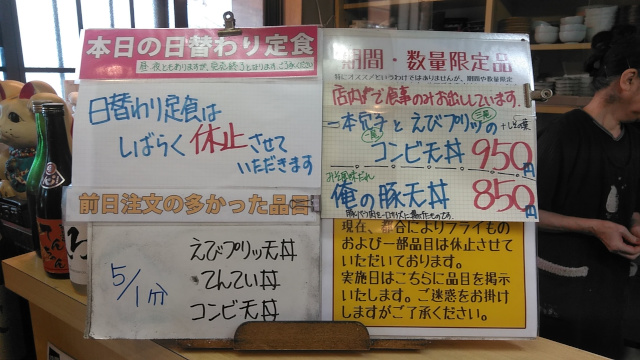 本日の日替わり定食
昼・夜ともありますが、完売終了となります。ご了承ください
日替わり定食は
しばらく休止させて
いただきます
前日注文の多かった品書
5/1分
えびプリッ天丼
てんてい丼
コンビ天丼
期間・数量限定品
特にオススメというわけではありませんが、期間や数量限定
店内で食事のみお出ししています。
一本穴子とえびプリッの
二尾
コンビ天丼 950円
俺の豚天丼 850円
現在、都合によりフライもの
および一部品目は休止させて
いただいております。
実施日はこちらに品目を掲示
いたします。ご迷惑をお掛け
しますがご了承ください。